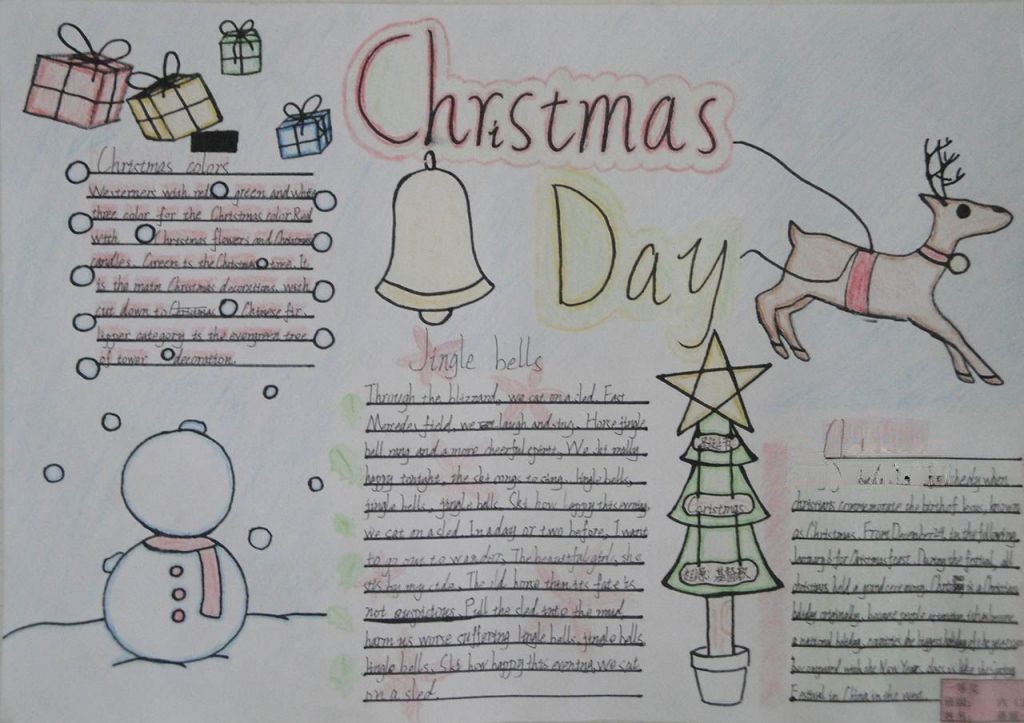 Christmas
Day
Christmas colors
Westerners with red green and white
three color for the Christmas color Red
with Christmas flowers and Christmas
candles. Green is the Christmas tree. It
is the main Christmas decorations. with
cut down to Christmas Chinese fir.
upper category is the evergreen tree
of tower decoration.
Jingle bells
Through the blizzard, we cat on a sled. Fast
Mercedes field, we laugh and sing. Horse jingle
bell rang and a more cheerful spirits, We ski really
happy tonight, the ski songs to sing. Jingle bells,
jingle bells, jingle bells. Ski how happy this evening
we cat on a sled. In a day or two before, I want
to go out to wander. The beautiful girl, she
sits by my side. The old horse thin its fate is
not auspicious. Pull the sled into the mud,
harm us worse suffering Jingle bells, jingle bells
Jingle bells. Ski how happy this evening, we cat
on a sled.
圣诞节
Christmas
起源: 基督教
the day when
christians commemorate the birth of known
as Christmas. From December 24 to the following
January 6 for Christmas feast. During the festival, all
christians hold a grand ceremony. is a Christian
holiday originally, because people
a national holiday,
the New Year, like the Spring
Festival in China in the west.